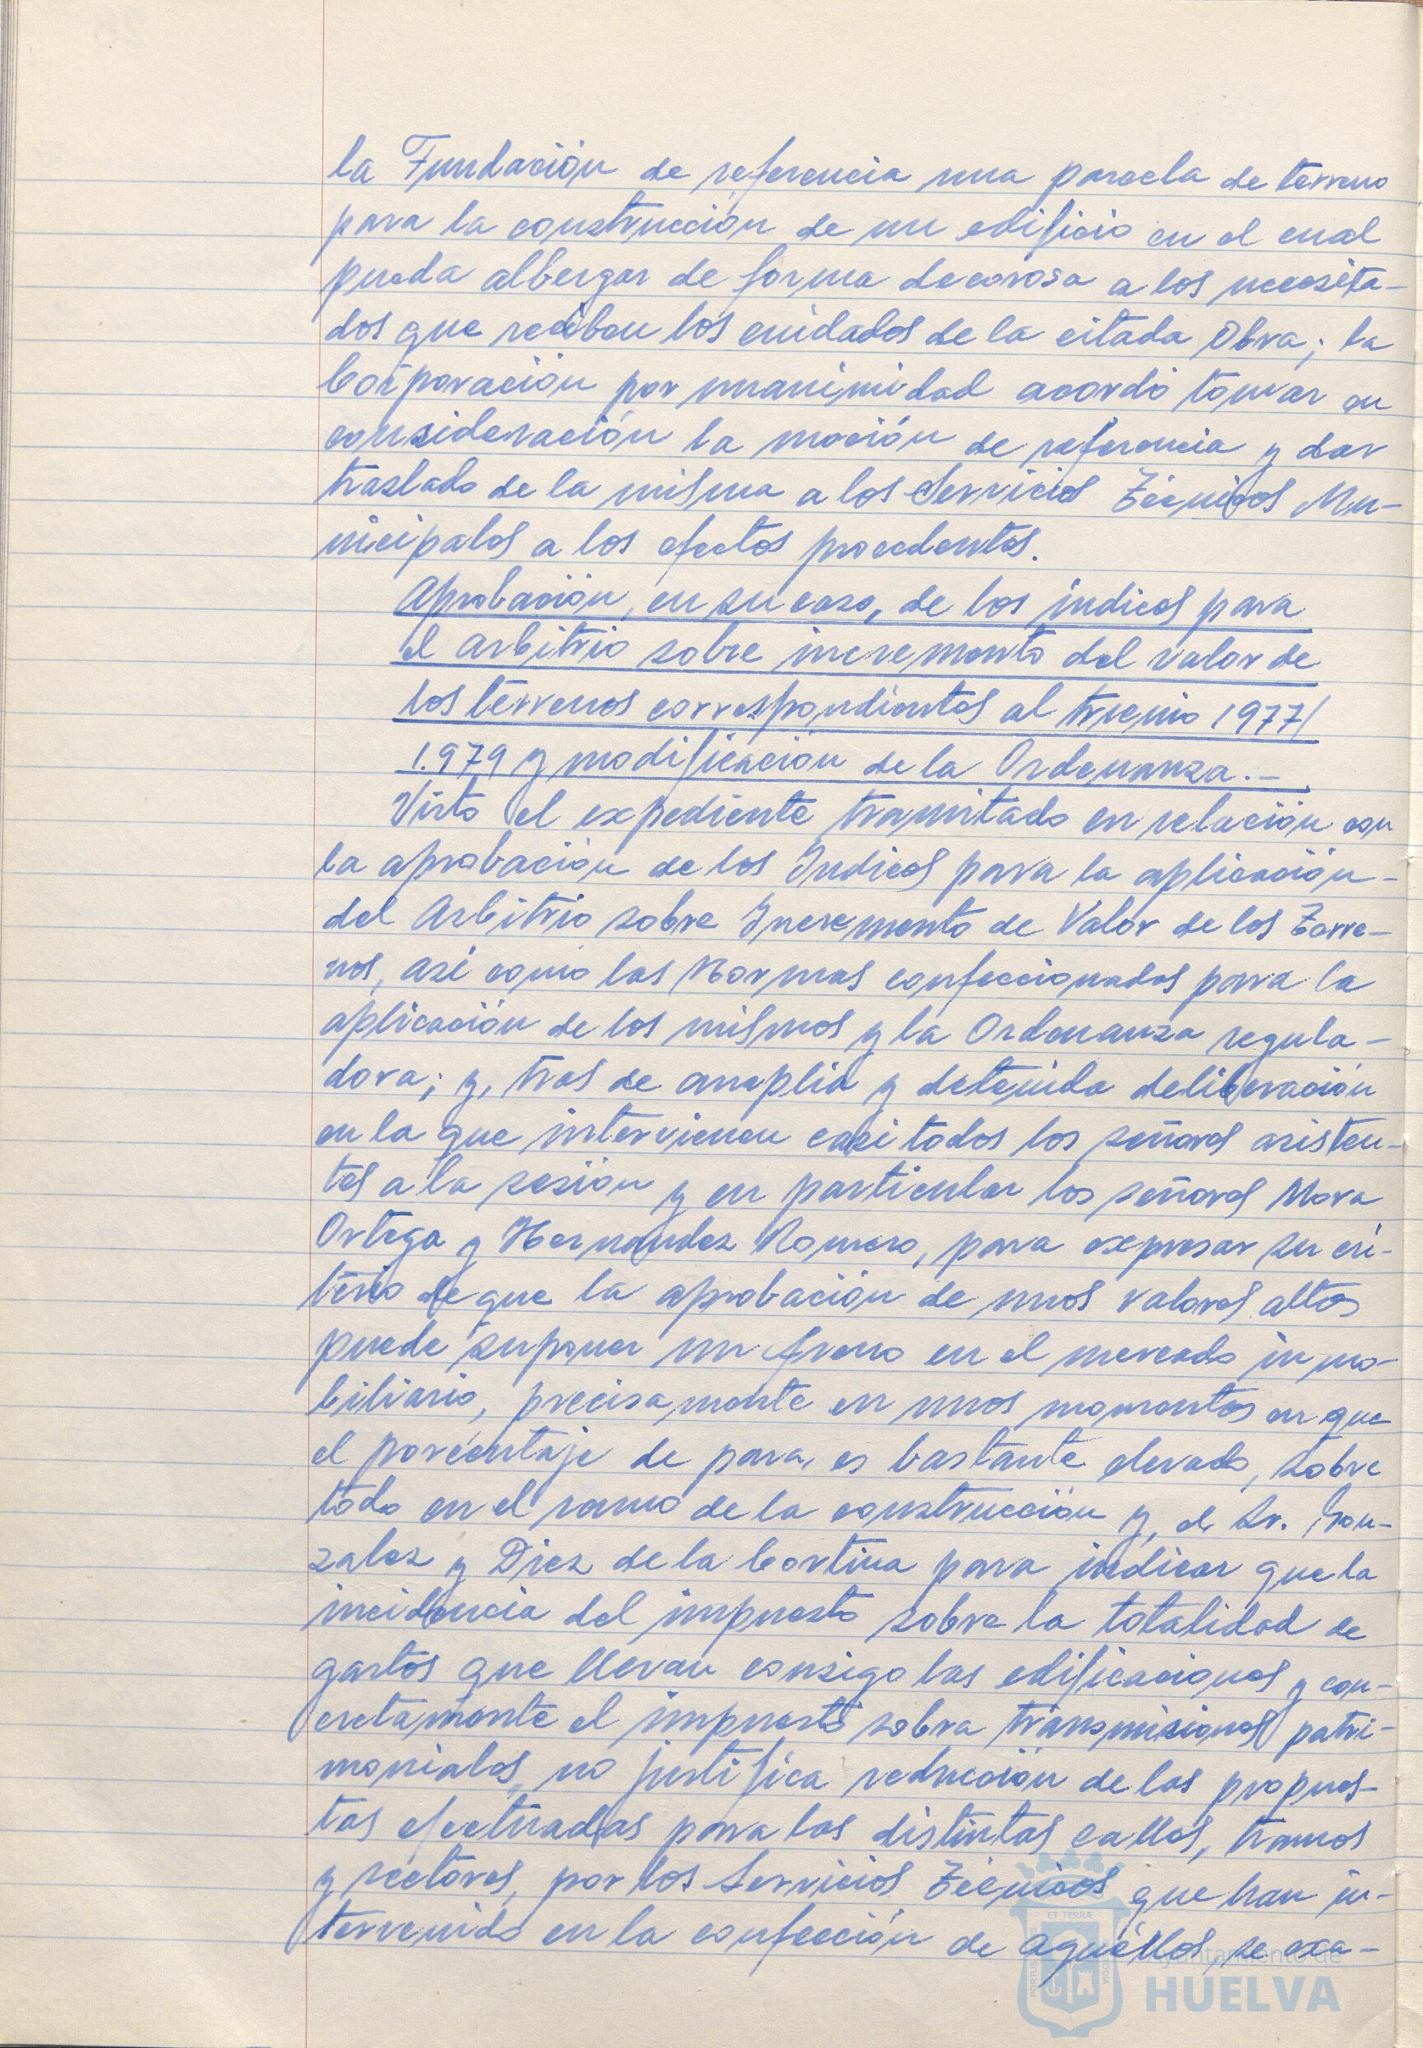 la Fundación de referencia una parcela de terreno
para la construcción de un edificio en el cual
pueda albergar de forma decorosa a los necesita-
dos que reciben los cuidados de la citada Obra; la
Corporación por unanimidad acordó tomar en
consideración la moción de referencia y dar
traslado de la misma a los Servicios Técnicos Mu-
nicipales a los efectos procedentes.
Aprobación, en su caso, de los índices para
el arbitrio sobre incremento del valor de
los terrenos correspondientes al trienio 1977/
1.979 y modificación de la Ordenanza.-
Visto el expediente tramitado en relación con
la aprobación de los Indices para la aplicación-
del Arbitrio sobre Incremento de Valor de los Terre-
nos, así como las Normas confeccionadas para la
aplicación de los mismos y la Ordenanza regula-
dora; y, tras de amplia y detenida deliberación
en la que intervienen casi todos los señores asisten-
tes a la sesión y en particular los señores Mora
Ortega y Hernandez Romero, para expresar su cri-
terio de que la aprobación de unos valores altos
puede suponer un freno en el mercado inmo-
biliario, precisamente en unos momentos en que
el porcentaje de paro, es bastante elevado, sobre
todo en el ramo de la construcción y, el Sr. Gon-
zalez y Diez de la Cortina para indicar que la
incidencia del impuesto sobre la totalidad de
gastos que llevan consigo las edificaciones y con-
cretamente el impuesto sobre transmisiones patri-
moniales, no justifica reducción de las propues-
tas efectuadas para las distintas calles, tramos
y sectores, por los Servicios Técnicos que han in-
tervenido en la confección de aquéllos, se exa-
ET TERRA
Ayuntamiento de
HUELVA